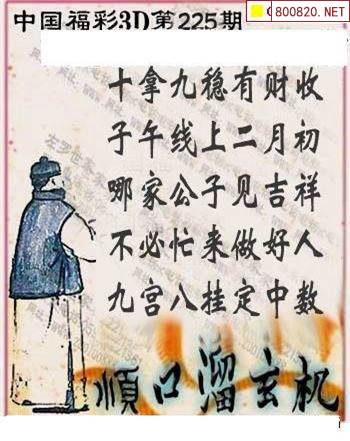 800820.NET
中国福彩3D第225期
十拿九稳有财收
子午线上二月初
哪家公子见吉祥
不必忙来做好人
九宫八挂定中数
順口溜玄机